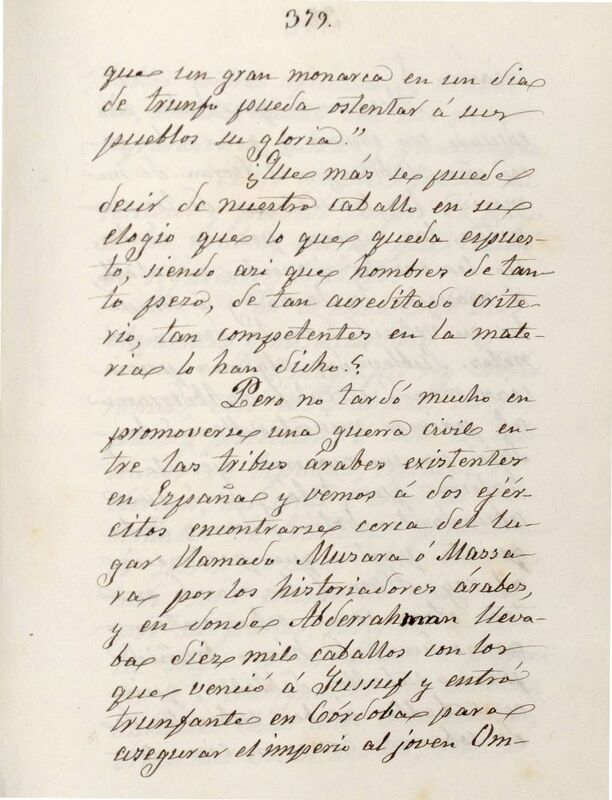 379.
que un gran monarca en un dia
de trunfo pueda ostentar á sus
pueblos su gloria."
¿Que más se puede
decir de nuestro caballo en su
elogio que lo que queda expues-
to, siendo asi que hombres de tan-
to pezo, de tan acreditado crite-
rio, tan competentes en la mate-
ria lo han dicho.?
Pero no tardó mucho en
promoverse una guerra civil en-
tre las tribus árabes existentes
en España y vemos á dos ejér-
citos encontrarse cerca del lu-
gar llamado Musara ó Massa-
ra por los historiadores árabes,
y en donde Abderrahman lleva-
ba diez mil caballos con los
que venció á Jussuf y entró
trunfante en Córdoba para
asegurar el imperio al joven Om-